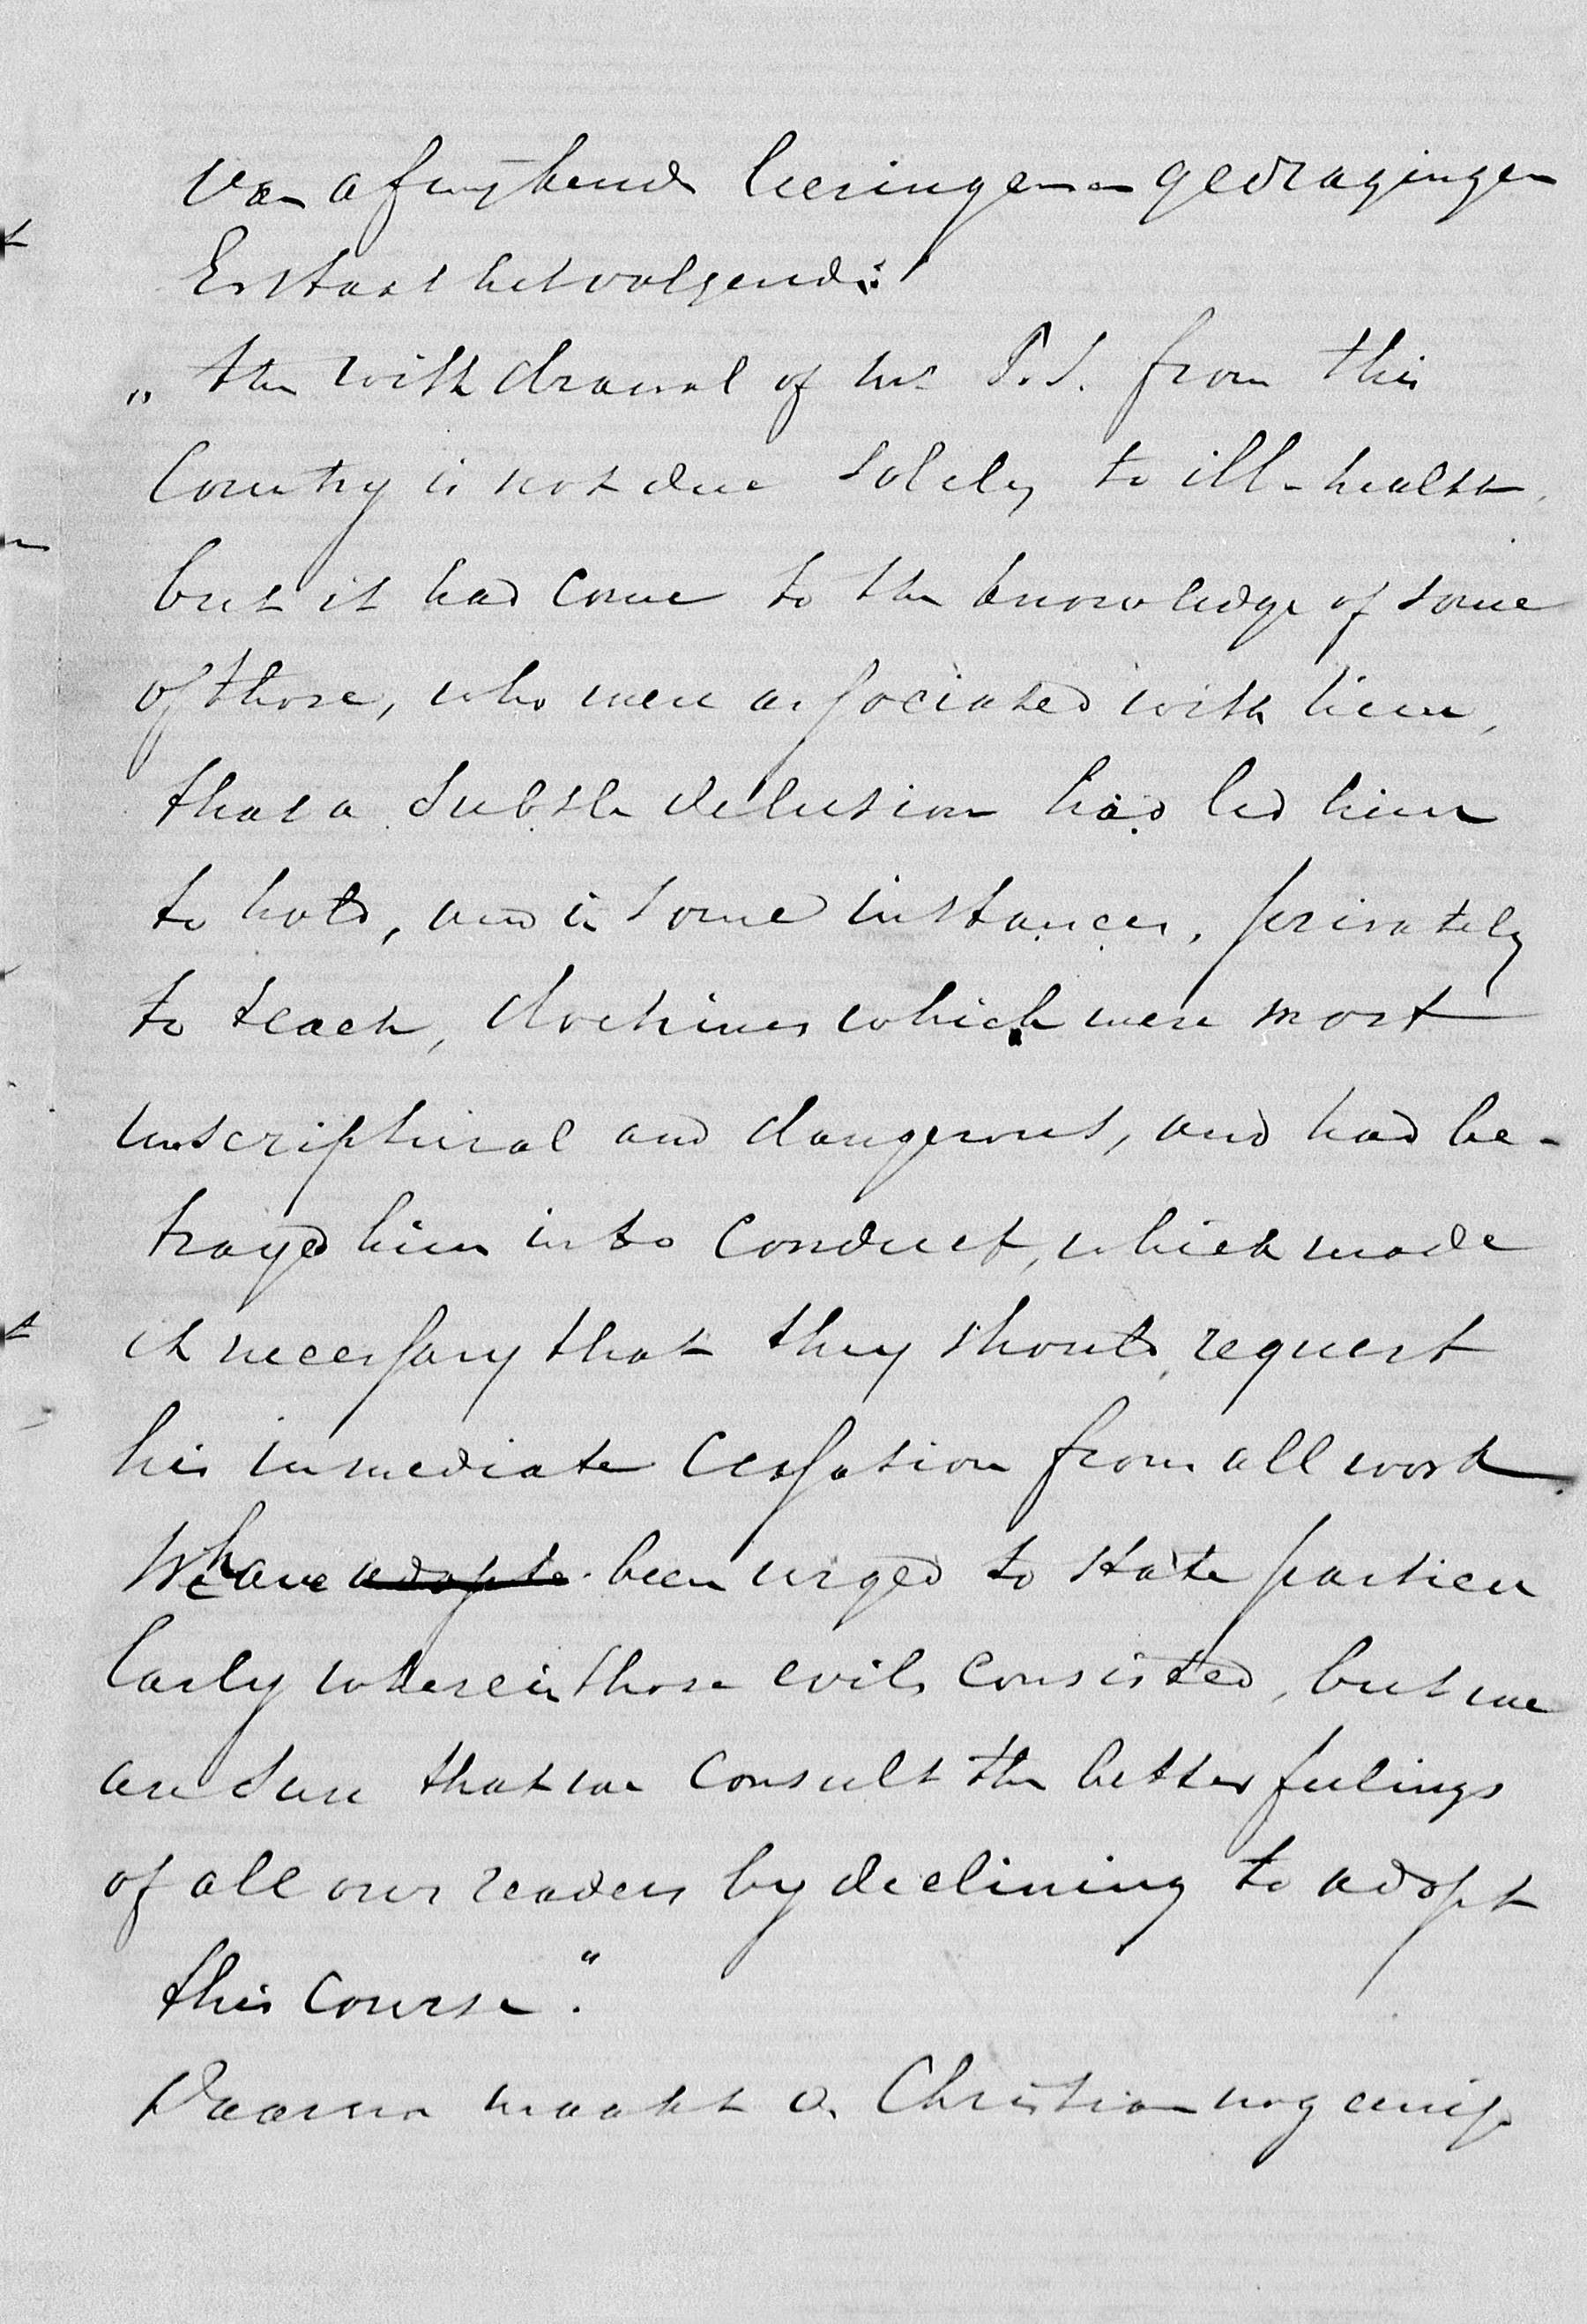 van afwijkende leeringen en gedragingen
Er staat het volgende:
„the withdrawal of Mr P.S. from this
Country is not due solely to ill-health,
but it had come to the knowledge of some
of those, who were associated with him,
that a subtle delusion had led him
to hold, and in some instances, privately
to teach, doctrines which were most
unscriptural and dangerous, and had be-
trayed him into conduct, which made
it necessary that they should request
his immediate cessation from all work.
We have adopte been urged to state particu
larly wherein those evils consisted, but we
are sure that we consult the better feelings
of all our readers by declining to adopt
this course."
Daarna maakt de Christian nog eenige